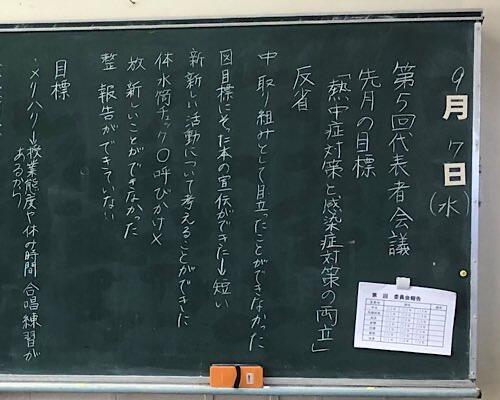 9月7日(水)
第5回代表者会議
先月の目標
「熱中症対策と感染症対策の両立」
反省
中 取り組みとして目立ったことができなかった
図 目標にそった本の宣伝ができた→短い
新 新しい活動について考えることができた
体 水筒チェック〇呼びかけ×
放 新しいことができなかった
整 報告ができていない
目標
・メリハリ→授業態度や休み時間 合唱練習が
あるから
第 回 委員会報告